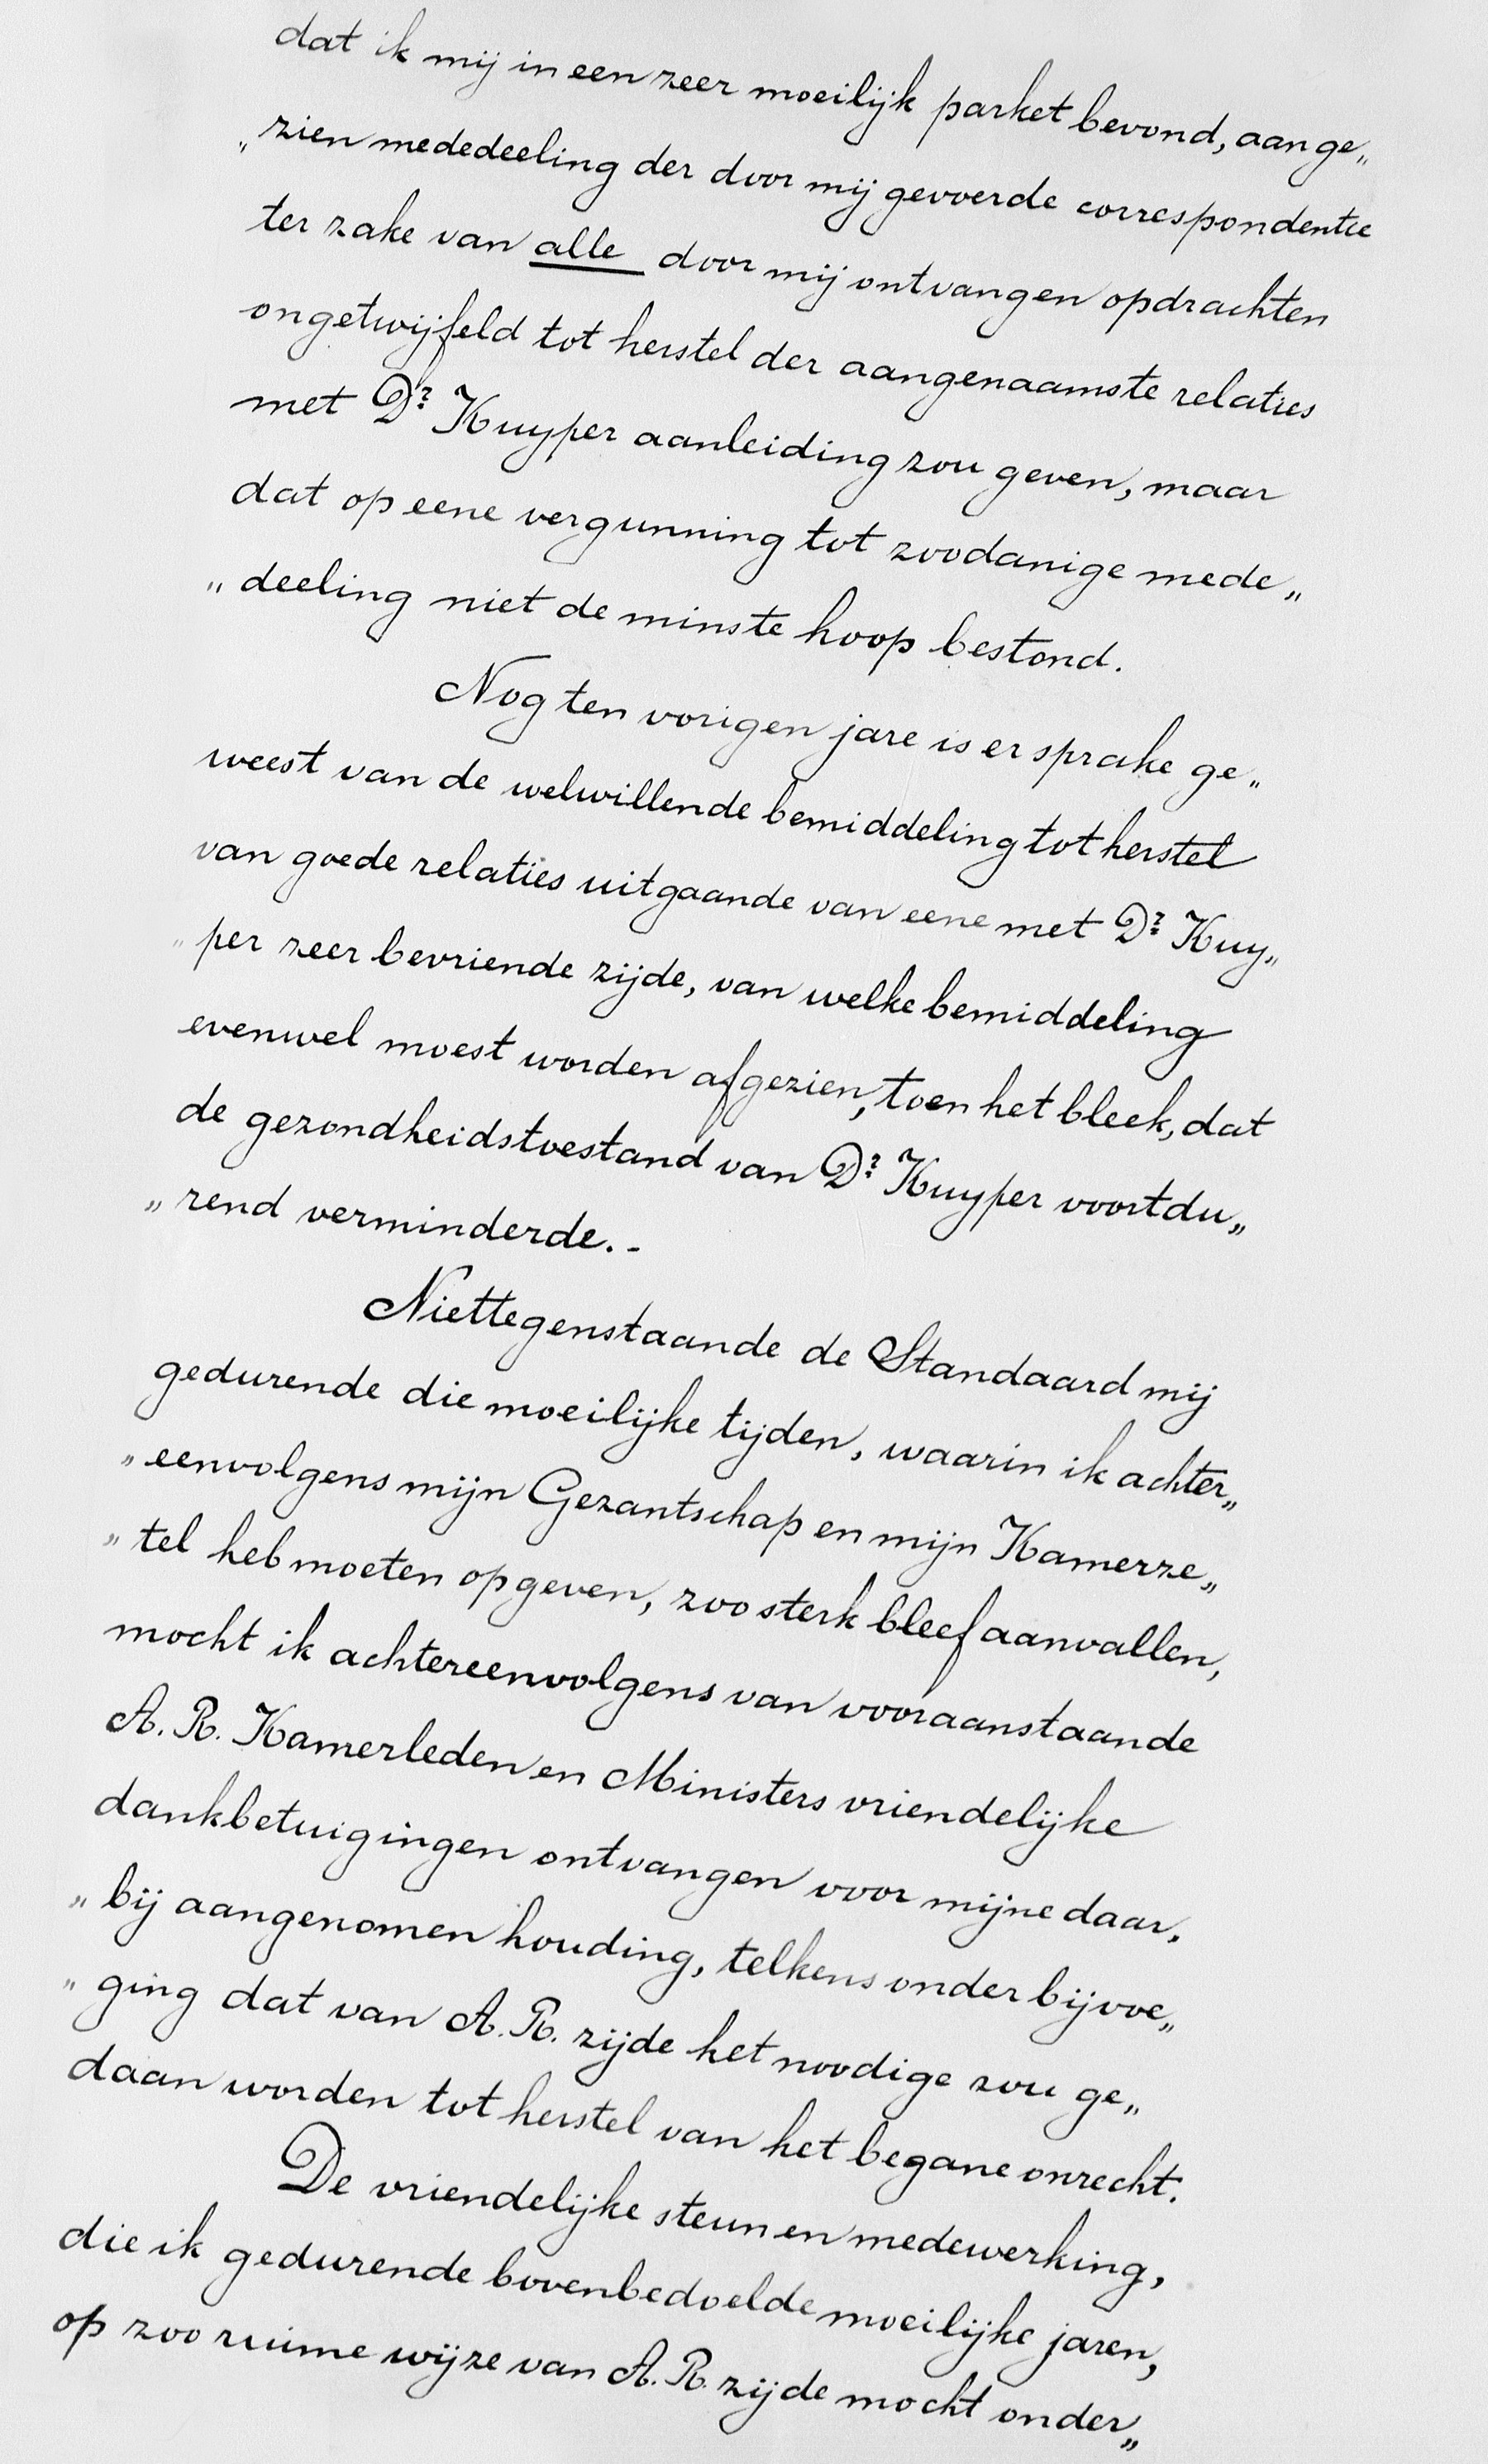 dat ik mij in een zeer moeilijk parket bevond, aange„
„zien mededeeling der door mij gevoerde correspondentie
ter zake van alle door mij ontvangen opdrachten
ongetwijfeld tot herstel der aangenaamste relaties
met Dr. Kuyper aanleiding zou geven, maar
dat op eene vergunning tot zoodanige mede„
„deeling niet de minste hoop bestond.
Nog ten vorigen jare is er sprake ge„
weest van de welwillende bemiddeling tot herstel
van goede relaties uitgaande van eene met Dr. Kuy„
„per zeer bevriende zijde, van welke bemiddeling
evenwel moest worden afgezien, toen het bleek, dat
de gezondheidstoestand van Dr. Kuyper voortdu„
„rend verminderde.-
Niettegenstaande de Standaard mij
gedurende die moeilijke tijden, waarin ik achter„
„eenvolgens mijn Gezantschap en mijn Kamerze„
„tel heb moeten opgeven, zoo sterk bleef aanvallen,
mocht ik achtereenvolgens van vooraanstaande
A. R. Kamerleden en Ministers vriendelijke
dankbetuigingen ontvangen voor mijne daar„
„bij aangenomen houding, telkens onder bijvoe„
„ging dat van A. R. zijde het noodige zou ge„
daan worden tot herstel van het begane onrecht.
De vriendelijke steun en medewerking,
die ik gedurende bovenbedoelde moeilijke jaren,
op zoo ruime wijze van A. R. zijde mocht onder„